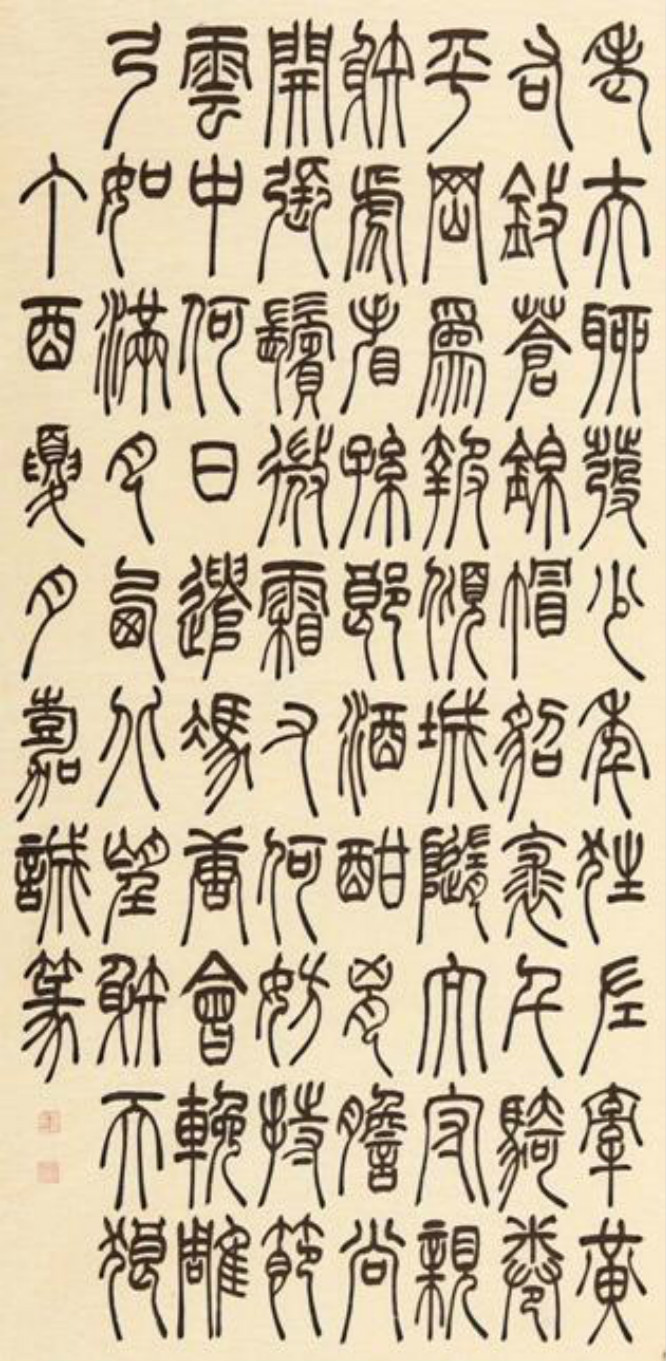 老夫聊發少年狂左牽黃
右擎蒼錦帽貂裘千騎卷
平岡為報傾城隨太守親
射虎看孫郎酒酣胸膽尚
開張鬢微霜又何妨持節
雲中何日遣馮唐會挽雕
弓如滿月西北望射天狼
丁酉夏月嘉誠篆